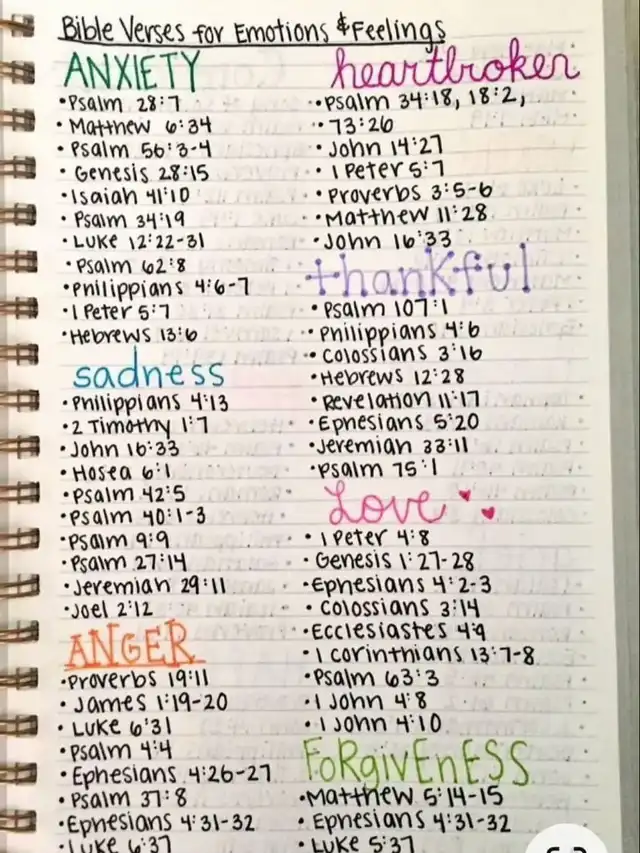 Bible Verses for Emotions & Feelings
ANXIETY
• Psalm 28:7
• Matthew 6:34
• Psalm 56:3-4
• Genesis 28:15
• Isaiah 41:10
• Psalm 34:19
• Luke 12:22-31
• Psalm 62:8
• Philippians 4:6-7
• 1 Peter 5:7
• Hebrews 13:6
sadness
• Philippians 4:13
• 2 Timothy 1:7
• John 16:33
• Hosea 6:1
• Psalm 42:5
• Psalm 40:1-3
• Psalm 9:9
• Psalm 27:14
• Jeremiah 29:11
• Joel 2:12
ANGER
• Proverbs 19:11
• James 1:19-20
• Luke 6:31
• Psalm 4:4
• Ephesians 4:26-27
• Psalm 37:8
• Ephesians 4:31-32
• Luke 6:37
heartbroken
• Psalm 34:18, 18:2,
• 73:26
• John 14:27
• 1 Peter 5:7
• Proverbs 3:5-6
• Matthew 11:28
• John 16:33
thankful
• Psalm 107:1
• Philippians 4:6
• Colossians 3:16
• Hebrews 12:28
• Revelation 11:17
• Ephesians 5:20
• Jeremiah 33:11
• Psalm 75:1
Love
• 1 Peter 4:8
• Genesis 1:27-28
• Ephesians 4:2-3
• Colossians 3:14
• Ecclesiastes 4:9
• 1 Corinthians 13:7-8
• Psalm 63:3
• 1 John 4:8
• 1 John 4:10
FORgivEnESS
• Matthew 5:14-15
• Ephesians 4:31-32
• Luke 5:37